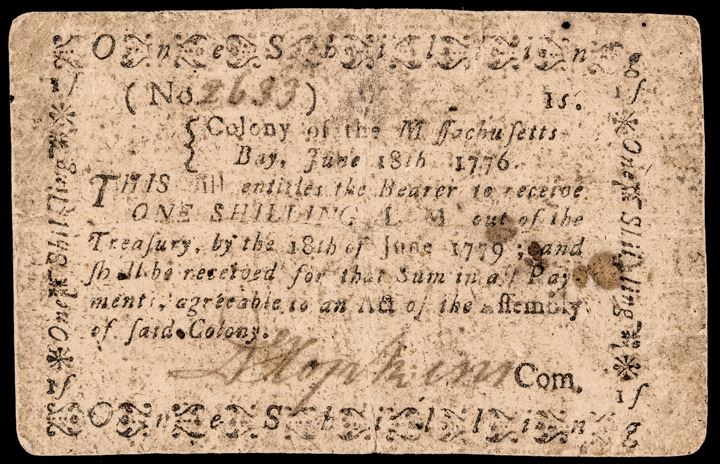 O n e S h i l l i n g
(No 2633) 1s.
Colony of the M ssachusetts
Bay, June 18th 1776.
THIS Bill entitles the Bearer to receive
ONE SHILLING L M out of the
Treasury, by the 18th of June 1779; and
sh ll be received for that Sum in all Pay
ments, agreeable to an Act of the Assembly
of said Colony.
D Hopkins Com.
O n e S h i l l i n g
1s One Shilling
1s One Shilling 1s